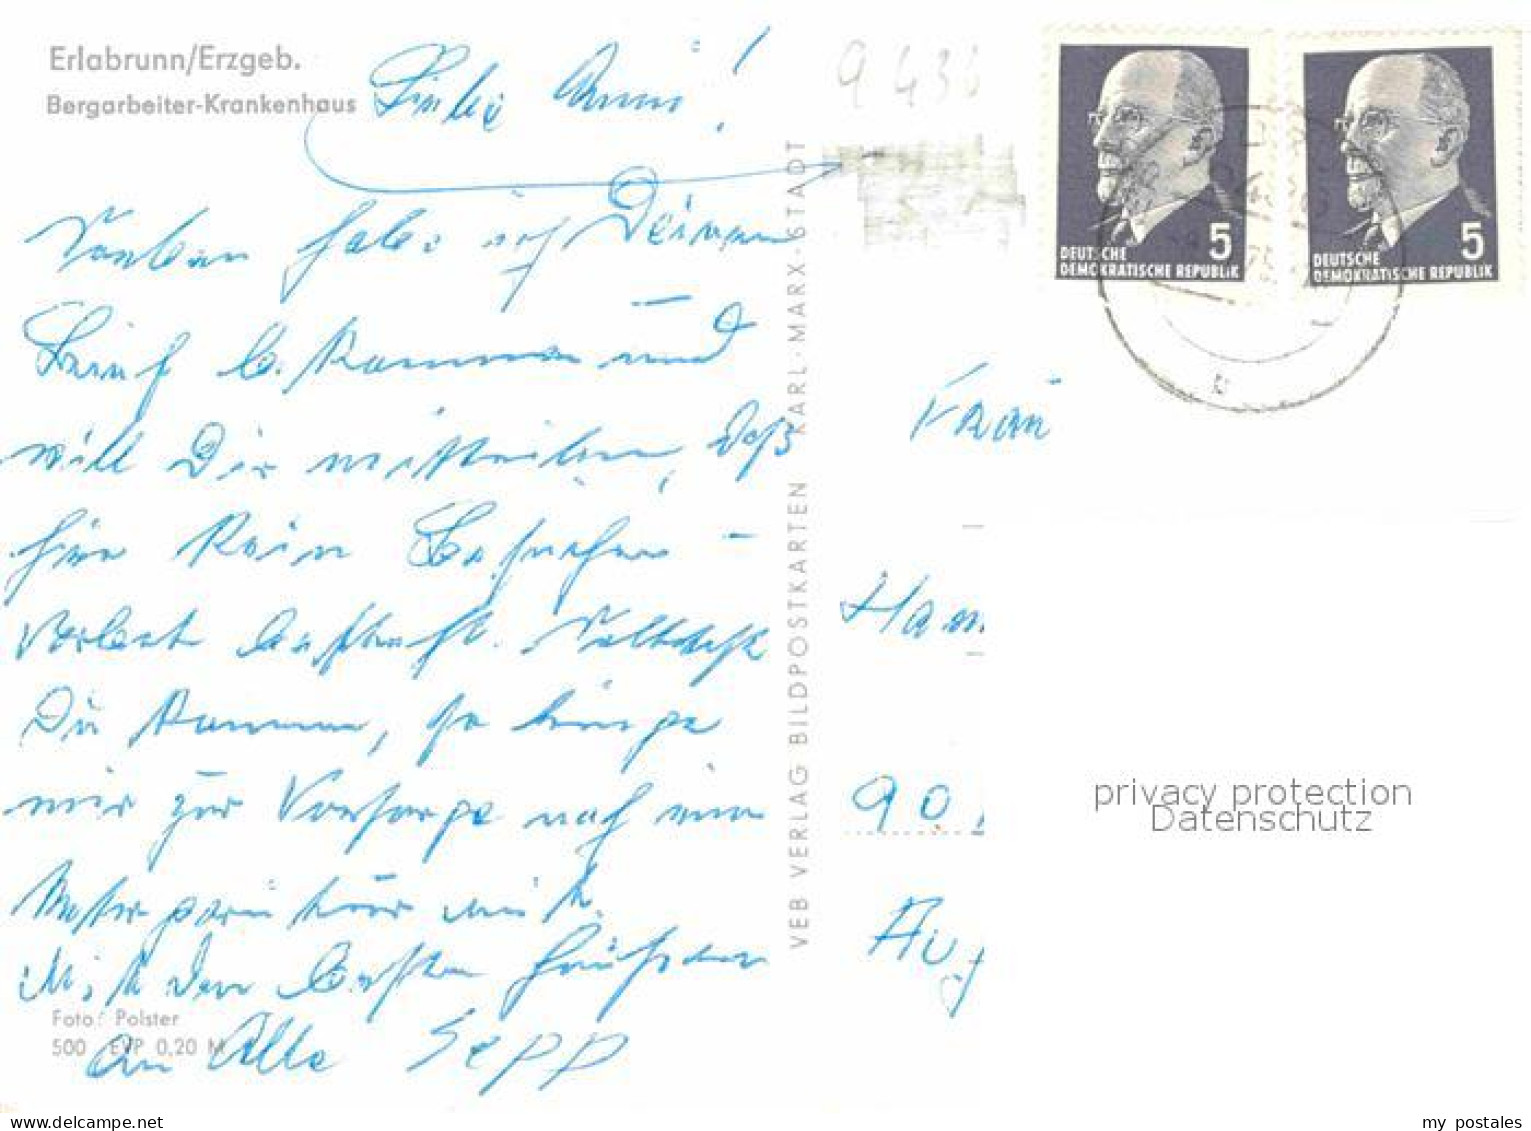 Erlabrunn/Erzgeb.
Bergarbeiter-Krankenhaus
Liebe Anni!
Soeben habe ich Deinen
Brief bekommen und
will Dir mitteilen, daß
hier kein Besucher-
verbot besteht. Solltest
Du kommen, so bringe
mir zur Vorsorge noch eine
mit.
Mit den besten Grüßen
an Alle Sepp
Foto: Polster
500 EVP 0,20 M
VEB VERLAG BILDPOSTKARTEN KARL-MARX-STADT
5
DEUTSCHE
DEMOKRATISCHE REPUBLIK
5
DEUTSCHE
DEMOKRATISCHE REPUBLIK
Frau
Ham
90
Aug
privacy protection
Datenschutz
my postales